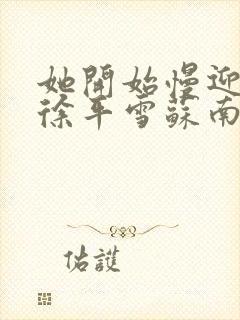 她開始慢迎
徐平雪蘇南
佑護